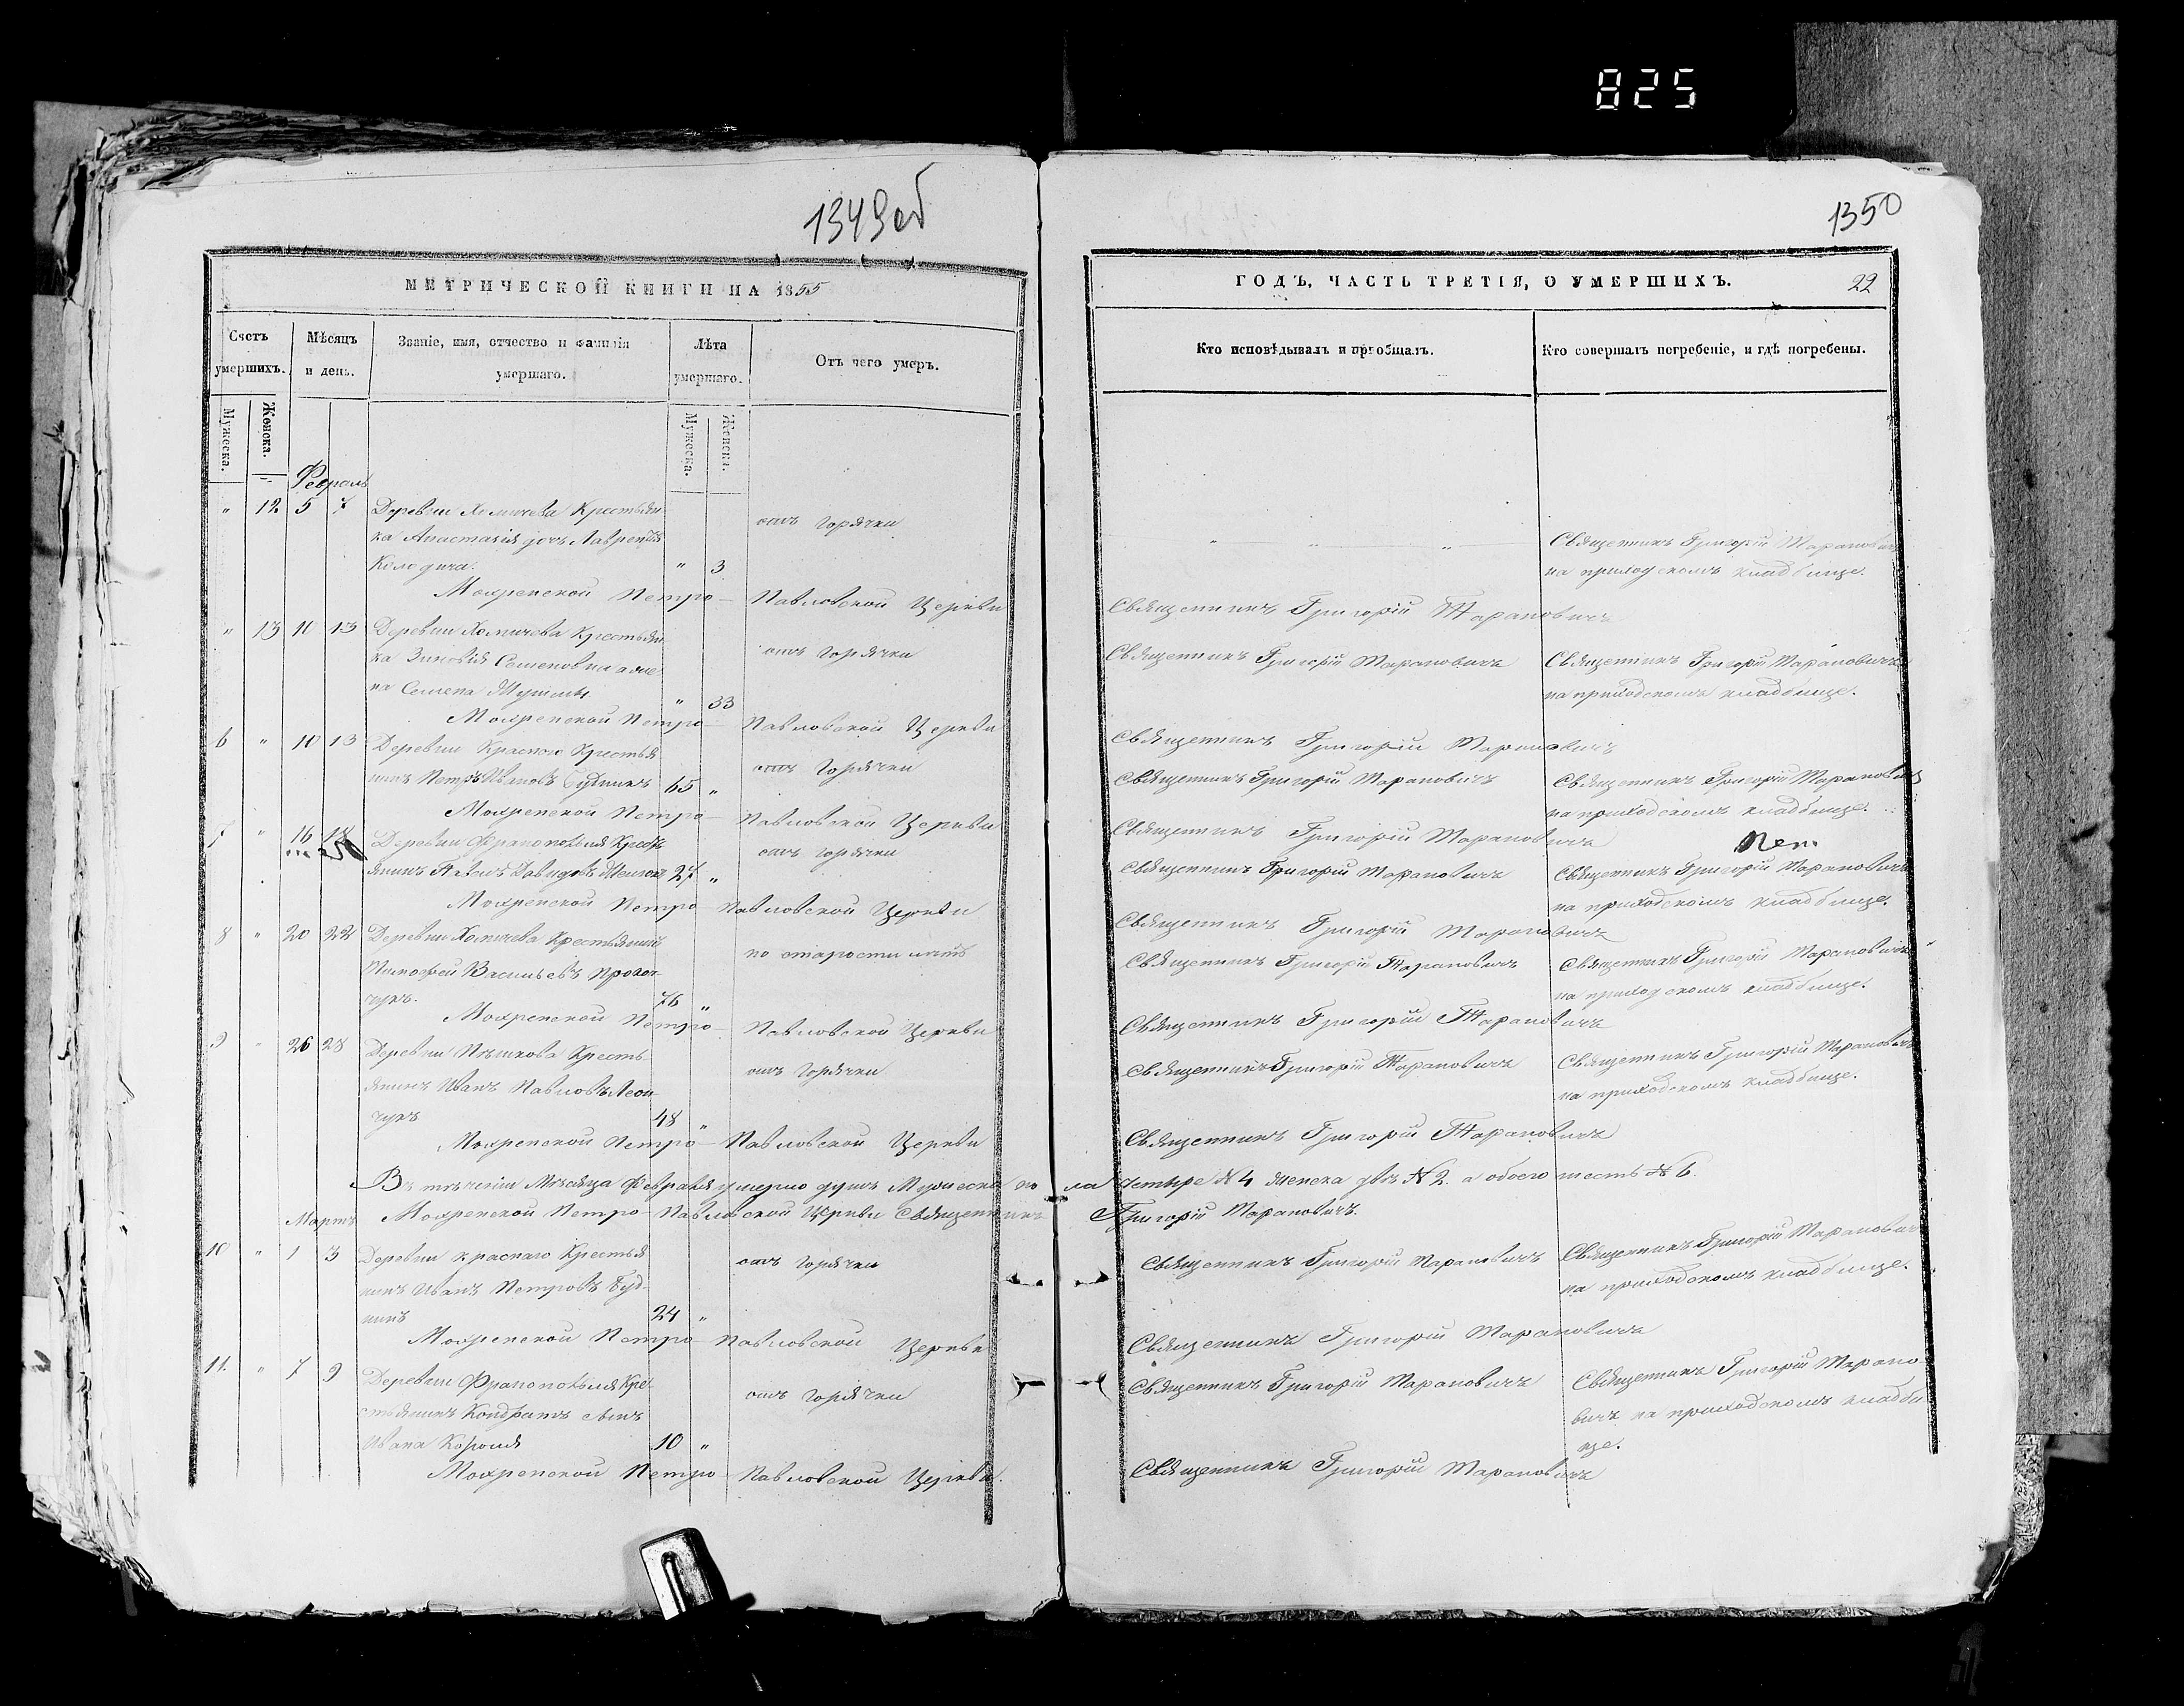 825
1349об
МЕТРИЧЕСКОЙ КНИГИ НА 1855
Счетъ умершихъ.
Мѣсяцъ и день.
Званіе, имя, отчество и фамилія умершаго.
Лѣта умершаго.
Отъ чего умеръ.
Мужеска. Женска.
Мужеска. Женска.
Февраль
" 12 5 7 Деревни Хомичева Крестьян-
ка Анастасія дочь Лаврентія
" 3
отъ горячки
Мохренской Петро-Павловской Церкви
" 13 10 13 Деревни Хомичева Крестьян-
ка Зиновія Семеновна жена
Семена
" 33
отъ горячки
Мохренской Петро-Павловской Церкви
6 " 10 13 Деревни Краснаго Крестья
нинъ Петръ Ивановъ Будникъ 65 "
отъ горячки
Мохренской Петро-Павловской Церкви
7 " 16 18 Деревни Франополья Кресть
янинъ Давидовъ 27 "
отъ горячки
Мохренской Петро-Павловской Церкви
8 " 20 22 Деревни Хомичева Крестьянинъ
Тимофей Васильевъ
чукъ. 76 "
по старости лѣтъ
Мохренской Петро-Павловской Церкви
9 " 26 28 Деревни Пѣшкова Кресть-
янинъ Иванъ Павловъ Леон-
чукъ 48 "
отъ горячки
Мохренской Петро-Павловской Церкви
Въ теченіи Мѣсяца Февраля умерло душъ Мужеска по
Мохренской Петро-Павловской Церкви Священникъ
Мартъ
10 " 1 3 Деревни Краснаго Крестья
нинъ Иванъ Петровъ Буд-
никъ 24 "
отъ горячки
Мохренской Петро-Павловской Церкви
11. " 7 9 Деревни Франополья Кре-
стьянинъ Кондратъ сынъ
Ивана Короля 10 "
отъ горячки
Мохренской Петро-Павловской Церкви.
1350
ГОДЪ, ЧАСТЬ ТРЕТІЯ, О УМЕРШИХЪ. 22
Кто исповѣдывалъ и пріобщалъ.
Кто совершалъ погребеніе, и гдѣ погребены.
" " "
Священникъ Григорій Тарановичъ
на приходскомъ кладбище.
Священникъ Григорій Тарановичъ
Священникъ Григорій Тарановичъ
Священникъ Григорій Тарановичъ
на приходскомъ кладбище.
Священникъ Григорій Тарановичъ
Священникъ Григорій Тарановичъ
Священникъ Григорій Тарановичъ
на приходскомъ кладбище.
Священникъ Григорій Тарановичъ
Священникъ Григорій Тарановичъ
Священникъ Григорій Тарановичъ
на приходскомъ кладбище.
Священникъ Григорій Тарановичъ
Священникъ Григорій Тарановичъ
Священникъ Григорій Тарановичъ
на приходскомъ кладбище.
Священникъ Григорій Тарановичъ
Священникъ Григорій Тарановичъ
Священникъ Григорій Тарановичъ
на приходскомъ кладбище.
Священникъ Григорій Тарановичъ
ла четыре № 4 женска двѣ № 2. а обоего шесть № 6
Григорій Тарановичъ.
Священникъ Григорій Тарановичъ
Священникъ Григорій Тарановичъ
на приходскомъ кладбище.
Священникъ Григорій Тарановичъ
Священникъ Григорій Тарановичъ
Священникъ Григорій Тарано
вичъ на приходскомъ кладби
ще.
Священникъ Григорій Тарановичъ